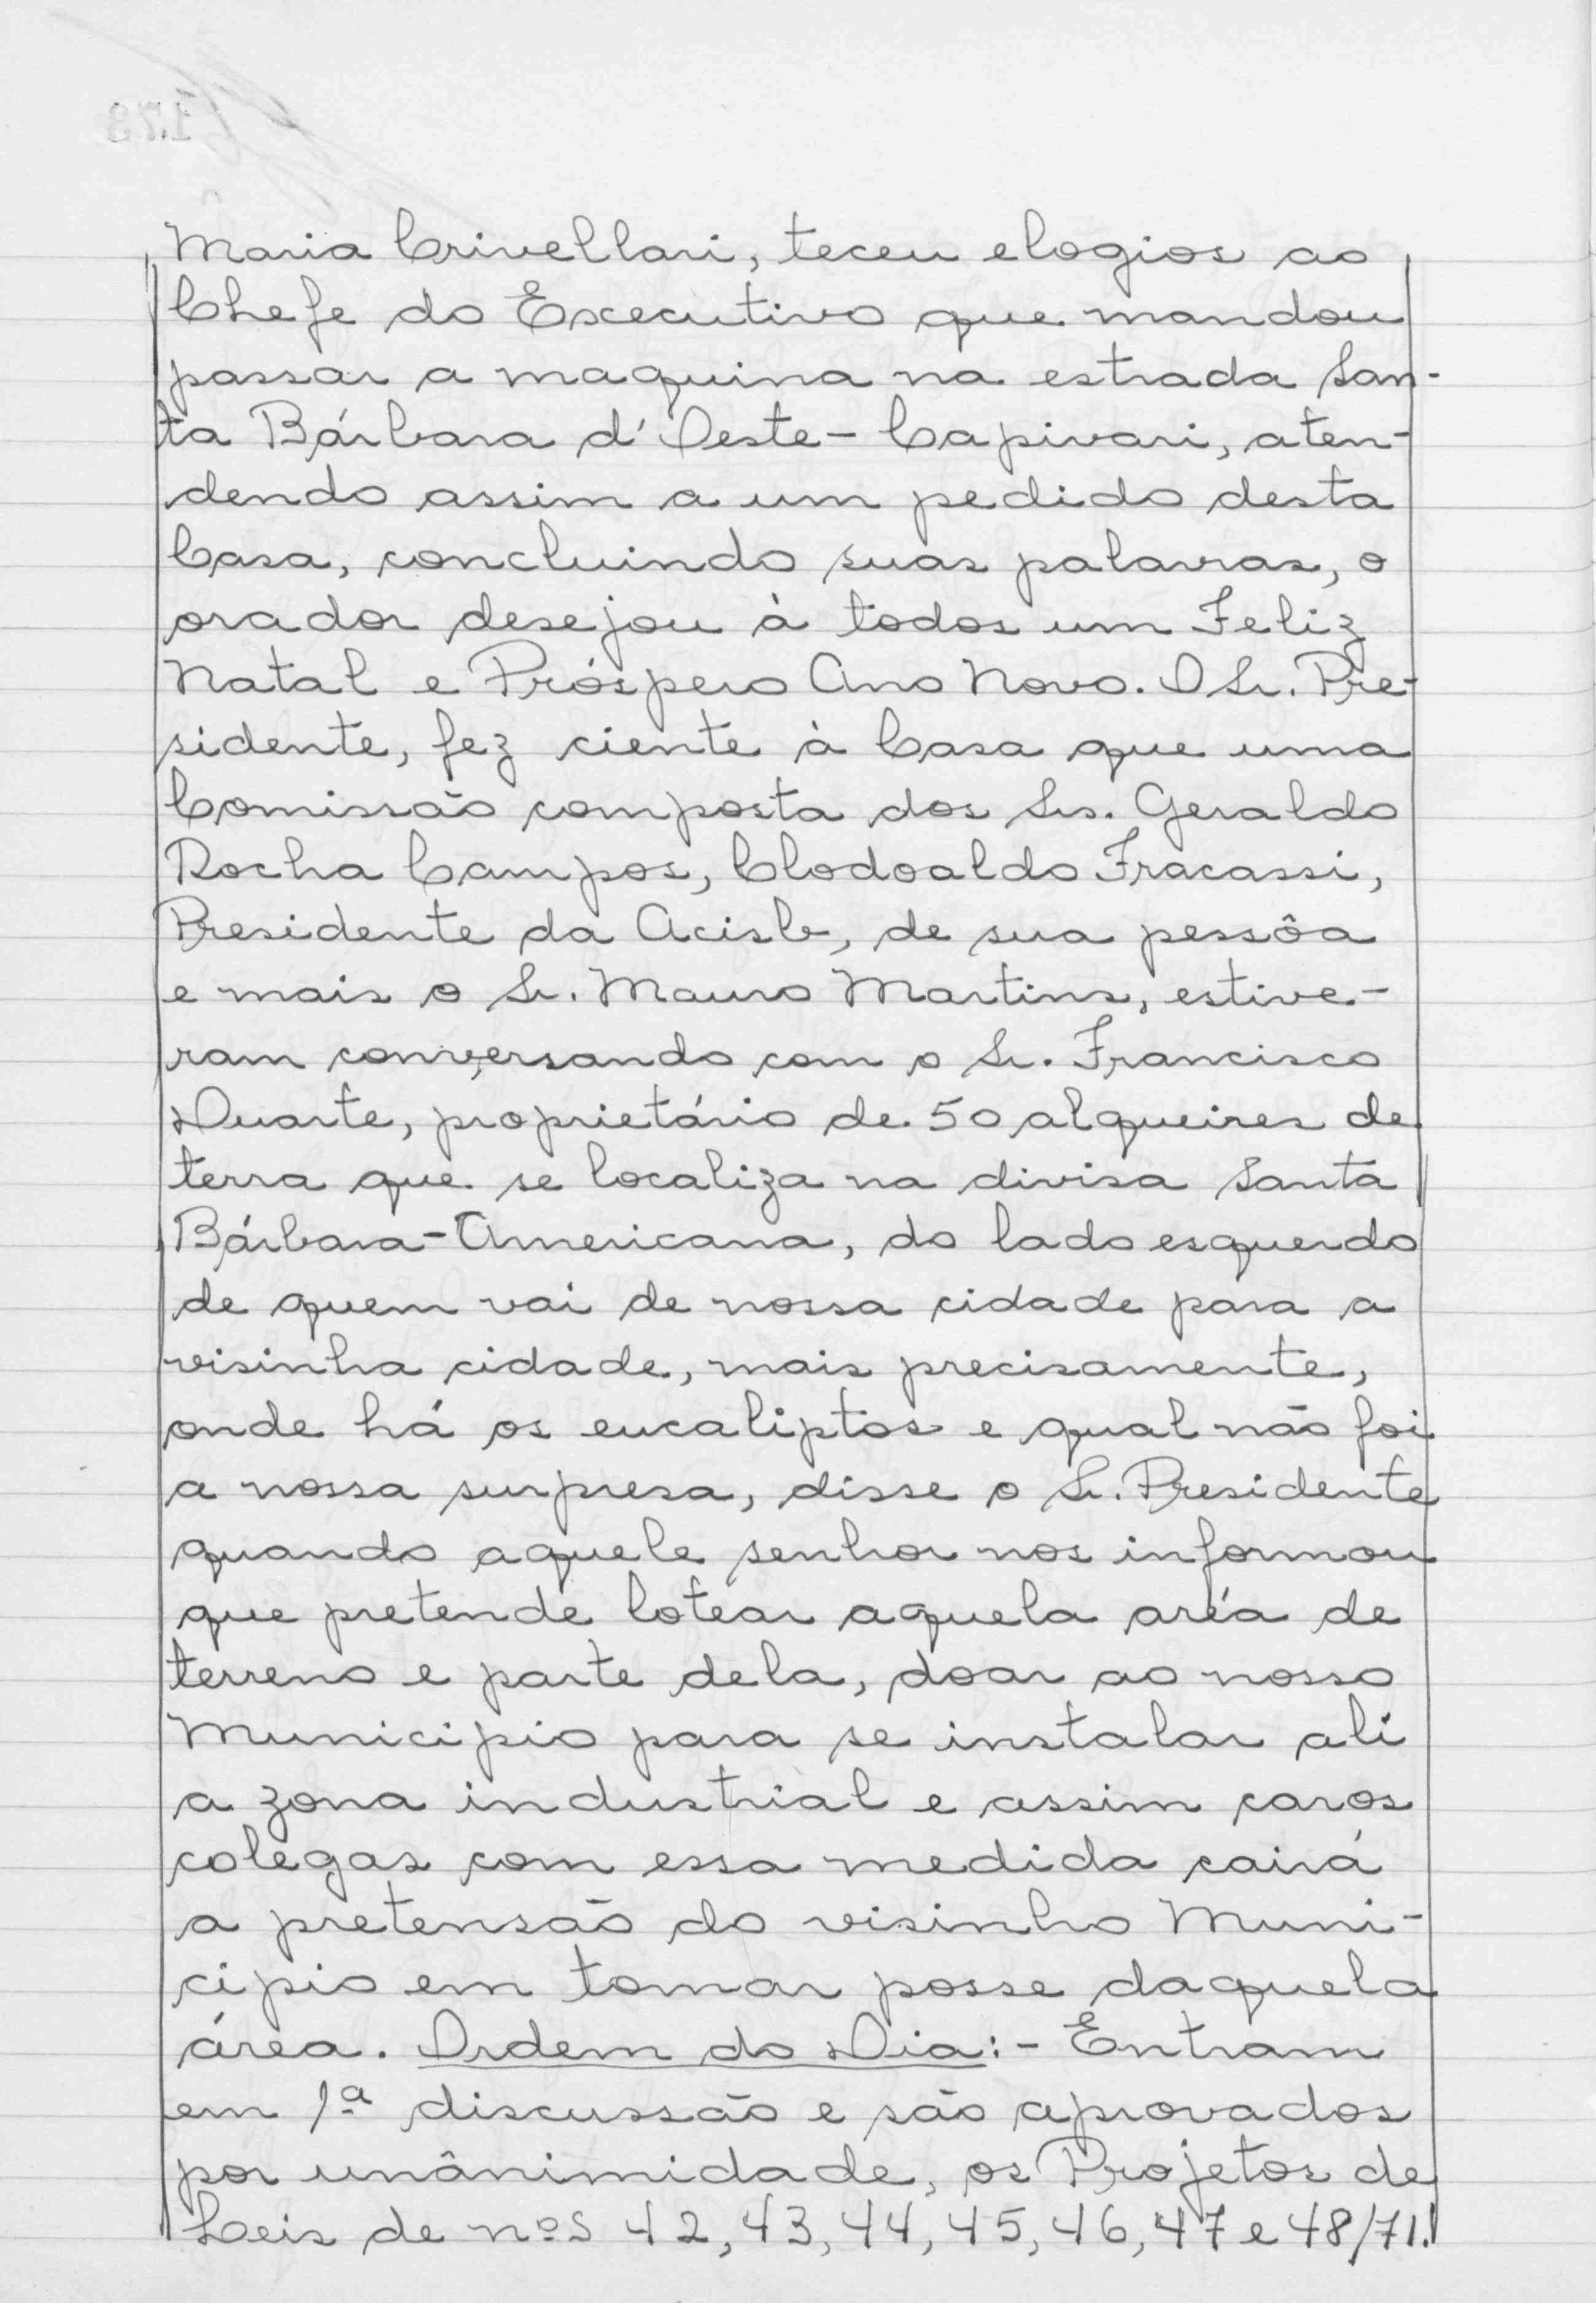 Maria Crivellari, teceu elogios ao
Chefe do Executivo que mandou
passar a maquina na estrada San-
ta Bárbara d'Oeste-Capivari, aten-
dendo assim a um pedido desta
Casa, concluindo suas palavras, o
orador desejou à todos um Feliz
Natal e Próspero Ano Novo. O Sr. Pre-
sidente, fez ciente à Casa que uma
Comissão composta dos Srs. Geraldo
Rocha Campos, Clodoaldo Fracassi,
Presidente da Acisb, de sua pessôa
e mais o Sr. Mauro Martins, estive-
ram conversando com o Sr. Francisco
Duarte, proprietário de 50 alqueires de
terra que se localiza na divisa Santa
Bárbara-Americana, do lado esquerdo
de quem vai de nossa cidade para a
visinha cidade, mais precisamente,
onde há os eucaliptos e qual não foi
a nossa surpresa, disse o Sr. Presidente
quando aquele senhor nos informou
que pretende lotear aquela aréa de
terreno e parte dela, doar ao nosso
Municipio para se instalar ali
a zona industrial e assim caros
colegas com essa medida cairá
a pretensão do visinho Muni-
cipio em tomar posse daquela
área. Ordem do Dia:- Entram
em 1ª discussão e são aprovados
por unânimidade, os Projetos de
Leis de nºs 42, 43, 44, 45, 46, 47 e 48/71.